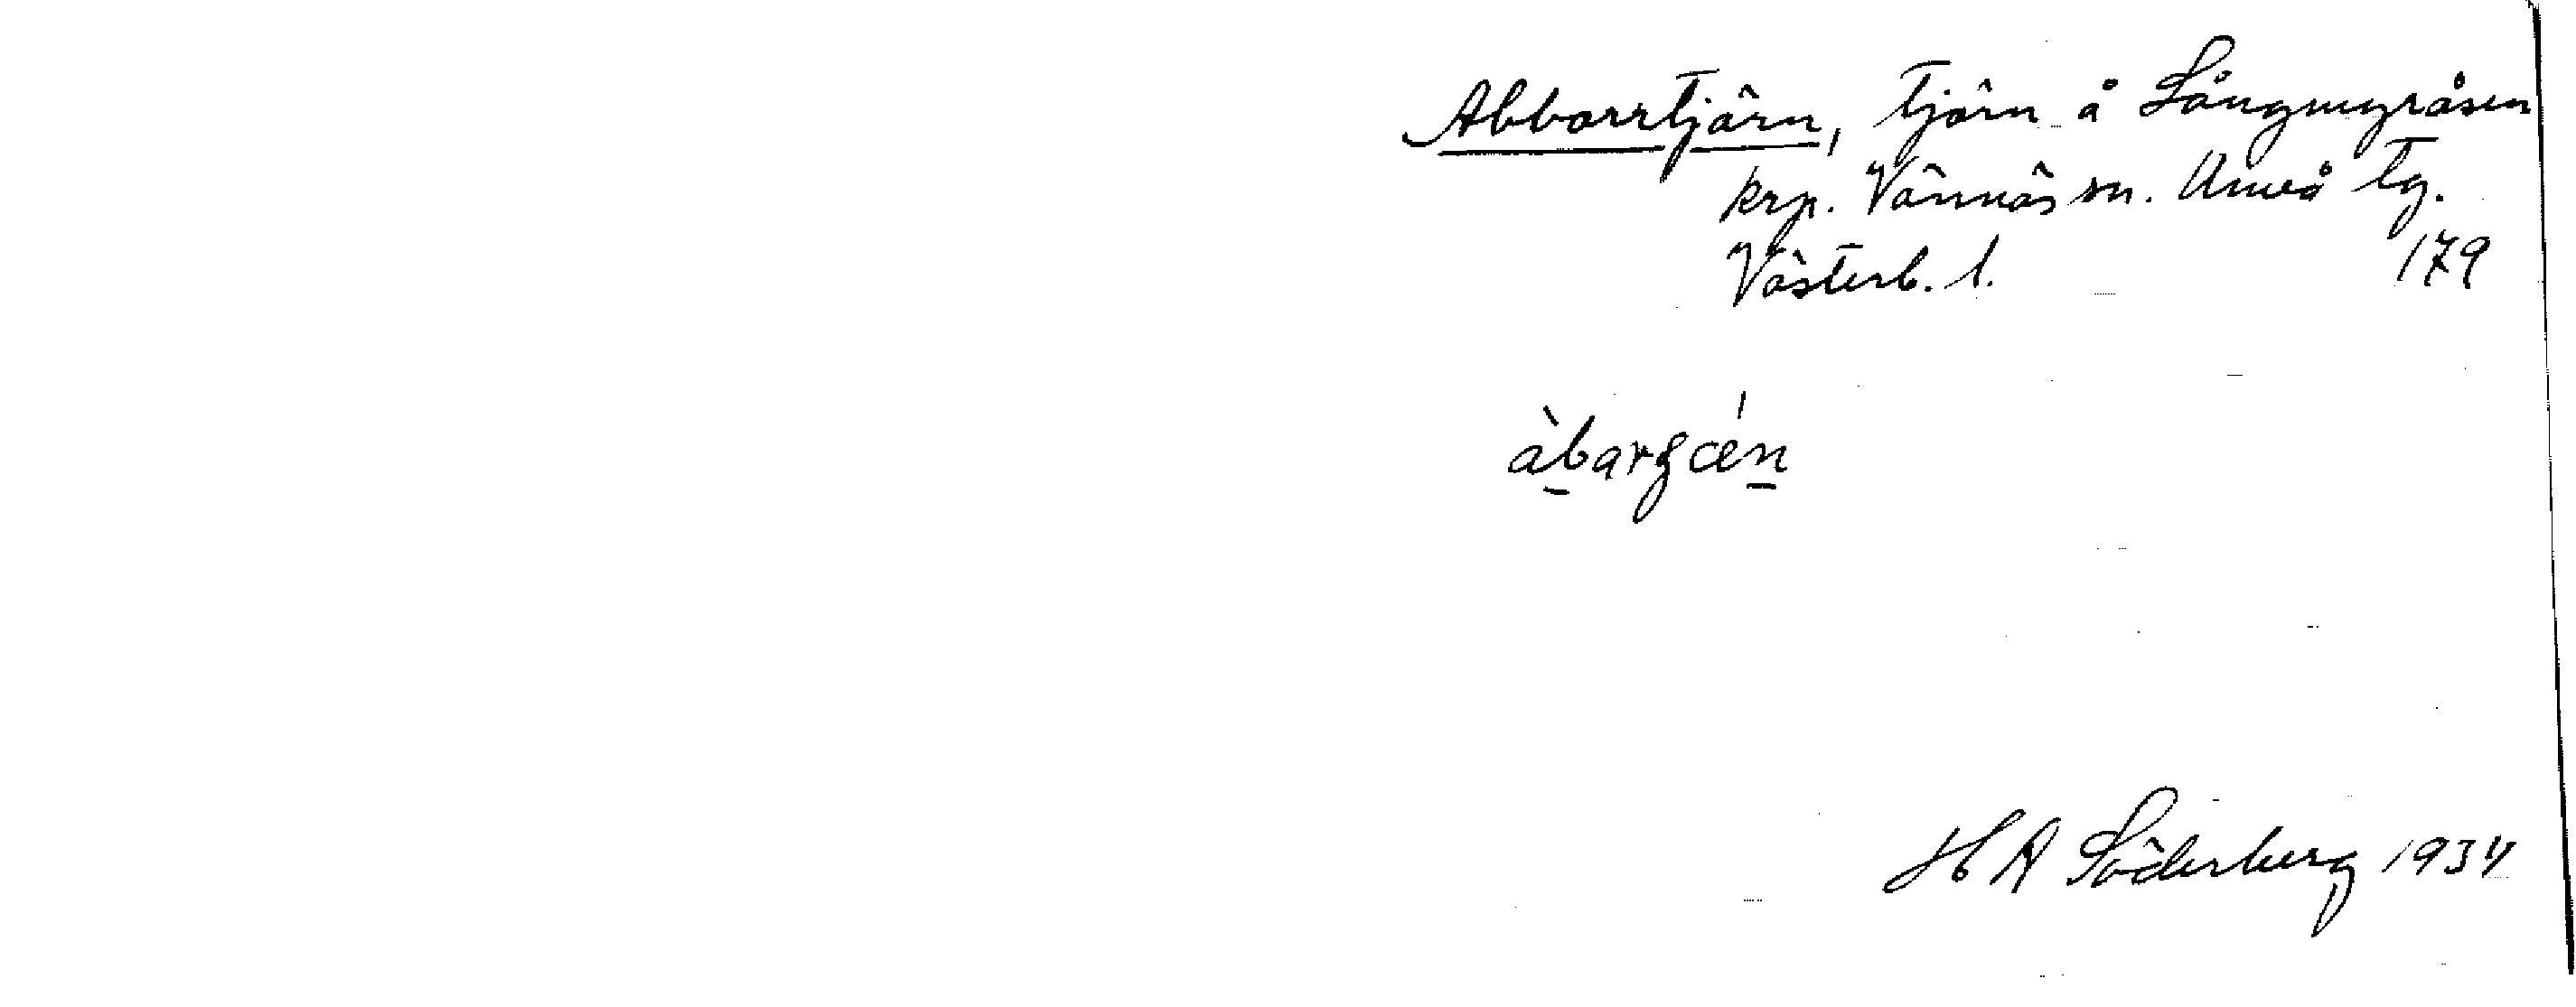 Abborrtjärn, tjärn å Långmyråsen
krp. Vännäs sn. Umeå tg.
Västerb. l. 179
àbarʒcén
H A Söderberg 1934